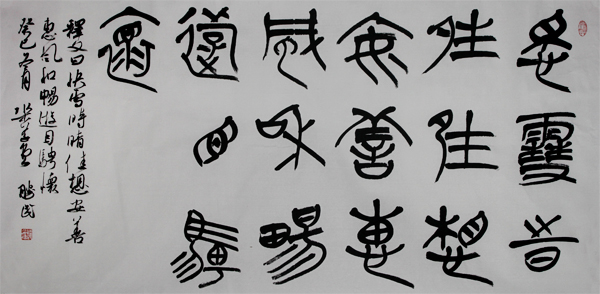 快雪時
晴佳想
安善惠
風和暢
遊目騁
懷
釋文曰快雪時晴佳想安善
惠風和暢遊目騁懷
癸巳月